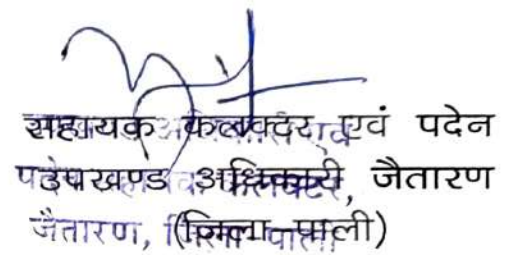 सहायक कलक्टर एवं पदेन
उपखण्ड अधिकारी, जैतारण
जैतारण, (जिला-पाली)